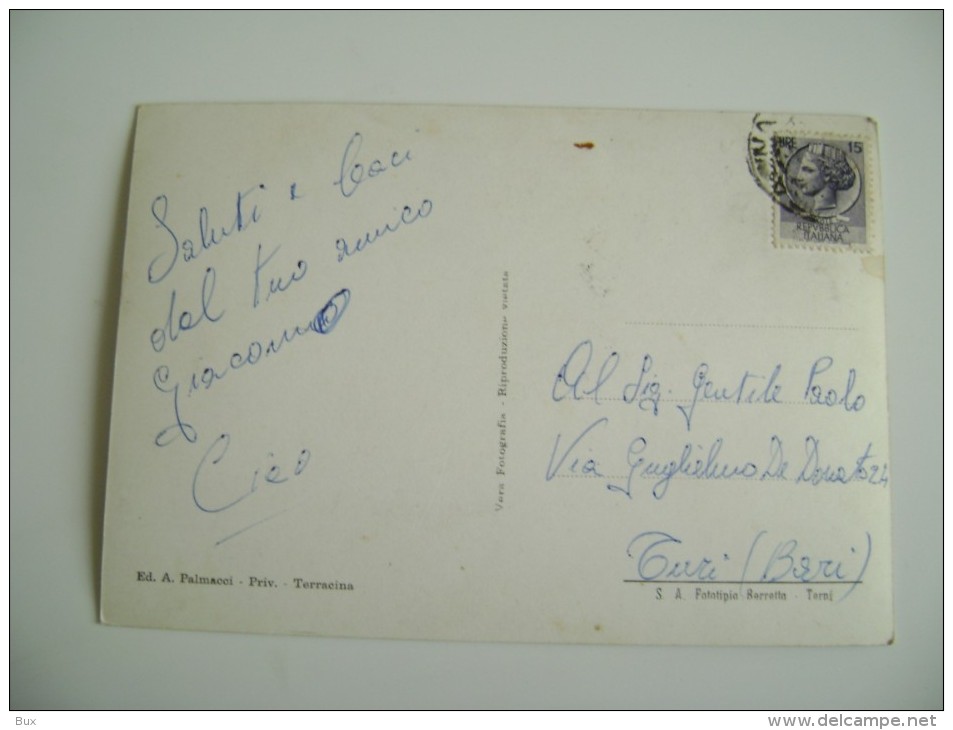 Saluti e baci
dal tuo amico
Giacomo
Ciao
Ed. A. Palmacci - Priv. - Terracina
Vera Fotografia - Riproduzione vietata
LIRE 15
REPVBBLICA
ITALIANA
Al Sig. Gentile Paolo
Via Guglielmo De Donato 24
Turi (Bari)
S. A. Fototipia Berretta - Terni
Bux
http://www.delcampe.net